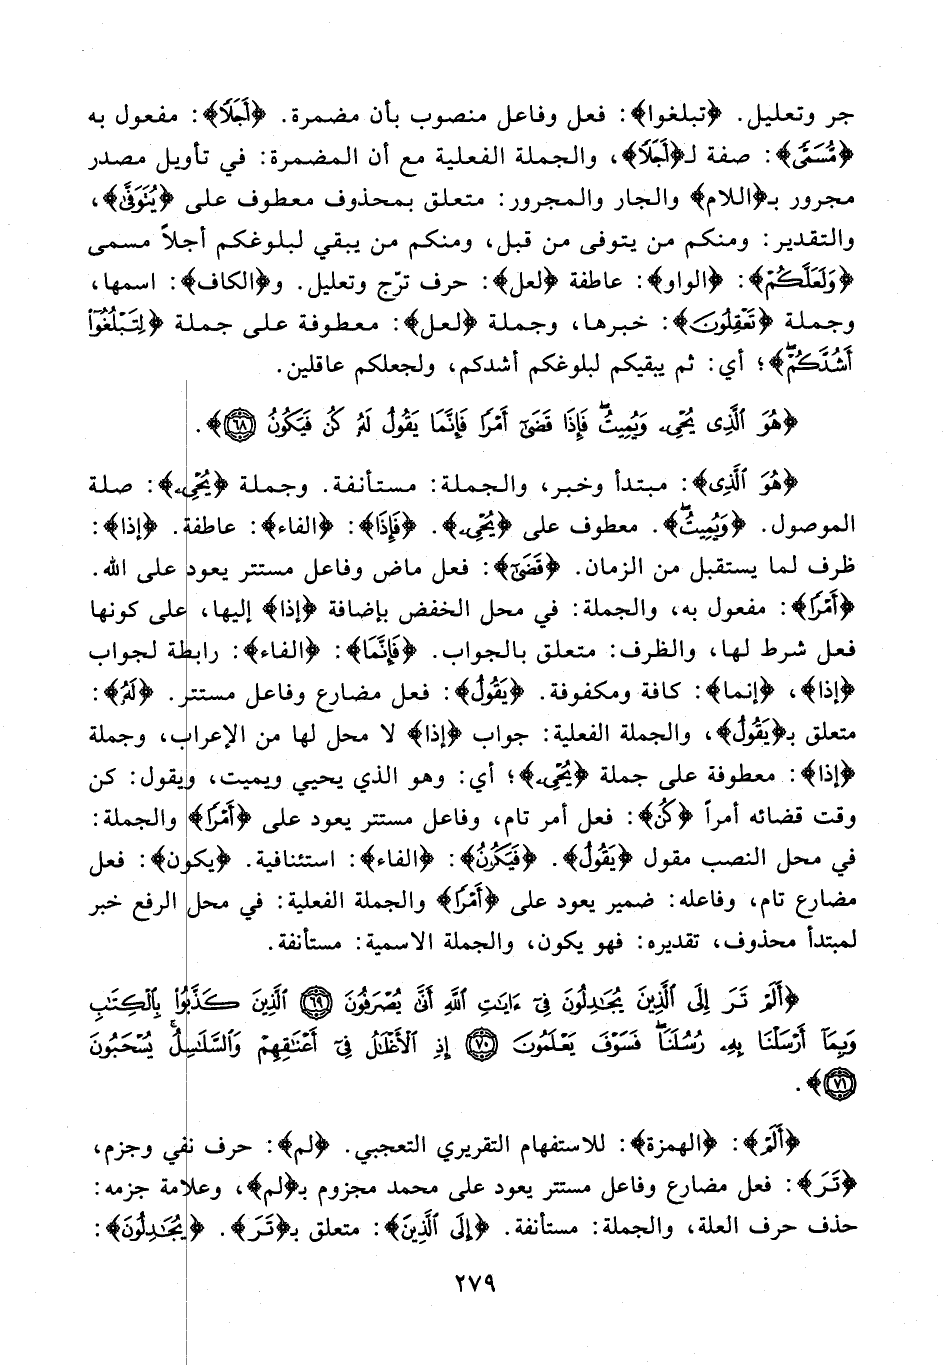 جر وتعليل. ﴿تبلغوا﴾: فعل وفاعل منصوب بأن مضمرة. ﴿أَجَلًا﴾: مفعول به
﴿مُّسَمًّى﴾: صفة لـ﴿أَجَلًا﴾، والجملة الفعلية مع أن المضمرة: في تأويل مصدر
مجرور بـ﴿اللام﴾ والجار والمجرور: متعلق بمحذوف معطوف على ﴿يُتَوَفَّى﴾،
والتقدير: ومنكم من يتوفى من قبل، ومنكم من يبقي لبلوغكم أجلاً مسمى
﴿وَلَعَلَّكُمْ﴾: ﴿الواو﴾: عاطفة ﴿لعل﴾: حرف ترّج وتعليل. و﴿الكاف﴾: اسمها،
وجملة ﴿تَعْقِلُونَ﴾: خبرها، وجملة ﴿لعل﴾: معطوفة على جملة ﴿لِتَبْلُغُوٓا۟
أَشُدَّكُمْ﴾؛ أي: ثم يبقيكم لبلوغكم أشدكم، ولجعلكم عاقلين.
﴿هُوَ ٱلَّذِى يُحْىِۦ وَيُمِيتُ ۖ فَإِذَا قَضَىٰٓ أَمْرًا فَإِنَّمَا يَقُولُ لَهُۥ كُن فَيَكُونُ ٦٨﴾.
﴿هُوَ ٱلَّذِى﴾: مبتدأ وخبر، والجملة: مستأنفة. وجملة ﴿يُحْىِۦ﴾: صلة
الموصول. ﴿وَيُمِيتُ ۖ﴾. معطوف على ﴿يُحْىِۦ﴾. ﴿فَإِذَا﴾: ﴿الفاء﴾: عاطفة. ﴿إذا﴾:
ظرف لما يستقبل من الزمان. ﴿قَضَىٰٓ﴾: فعل ماض وفاعل مستتر يعود على الله.
﴿أَمْرًا﴾: مفعول به، والجملة: في محل الخفض بإضافة ﴿إذا﴾ إليها، على كونها
فعل شرط لها، والظرف: متعلق بالجواب. ﴿فَإِنَّمَا﴾: ﴿الفاء﴾: رابطة لجواب
﴿إذا﴾، ﴿إنما﴾: كافة ومكفوفة. ﴿يَقُولُ﴾: فعل مضارع وفاعل مستتر. ﴿لَهُۥ﴾:
متعلق بـ﴿يَقُولُ﴾، والجملة الفعلية: جواب ﴿إذا﴾ لا محل لها من الإعراب، وجملة
﴿إذا﴾: معطوفة على جملة ﴿يُحْىِۦ﴾؛ أي: وهو الذي يحيي ويميت، ويقول: كن
وقت قضائه أمراً ﴿كُن﴾: فعل أمر تام، وفاعل مستتر يعود على ﴿أَمْرًا﴾ والجملة:
في محل النصب مقول ﴿يَقُولُ﴾. ﴿فَيَكُونُ﴾: ﴿الفاء﴾: استئنافية. ﴿يكون﴾: فعل
مضارع تام، وفاعله: ضمير يعود على ﴿أَمْرًا﴾ والجملة الفعلية: في محل الرفع خبر
لمبتدأ محذوف، تقديره: فهو يكون، والجملة الاسمية: مستأنفة.
﴿أَلَمْ تَرَ إِلَى ٱلَّذِينَ يُجَٰدِلُونَ فِىٓ ءَايَٰتِ ٱللَّهِ أَنَّىٰ يُصْرَفُونَ ٦٩ ٱلَّذِينَ كَذَّبُوا۟ بِٱلْكِتَٰبِ
وَبِمَآ أَرْسَلْنَا بِهِۦ رُسُلَنَا ۖ فَسَوْفَ يَعْلَمُونَ ٧٠ إِذِ ٱلْأَغْلَٰلُ فِىٓ أَعْنَٰقِهِمْ وَٱلسَّلَٰسِلُ يُسْحَبُونَ
٧١﴾.
﴿أَلَمْ﴾: ﴿الهمزة﴾: للاستفهام التقريري التعجبي. ﴿لم﴾: حرف نفي وجزم،
﴿تَرَ﴾: فعل مضارع وفاعل مستتر يعود على محمد مجزوم بـ﴿لم﴾، وعلامة جزمه:
حذف حرف العلة، والجملة: مستأنفة. ﴿إِلَى ٱلَّذِينَ﴾: متعلق بـ﴿تَرَ﴾. ﴿يُجَٰدِلُونَ﴾:
٢٧٩